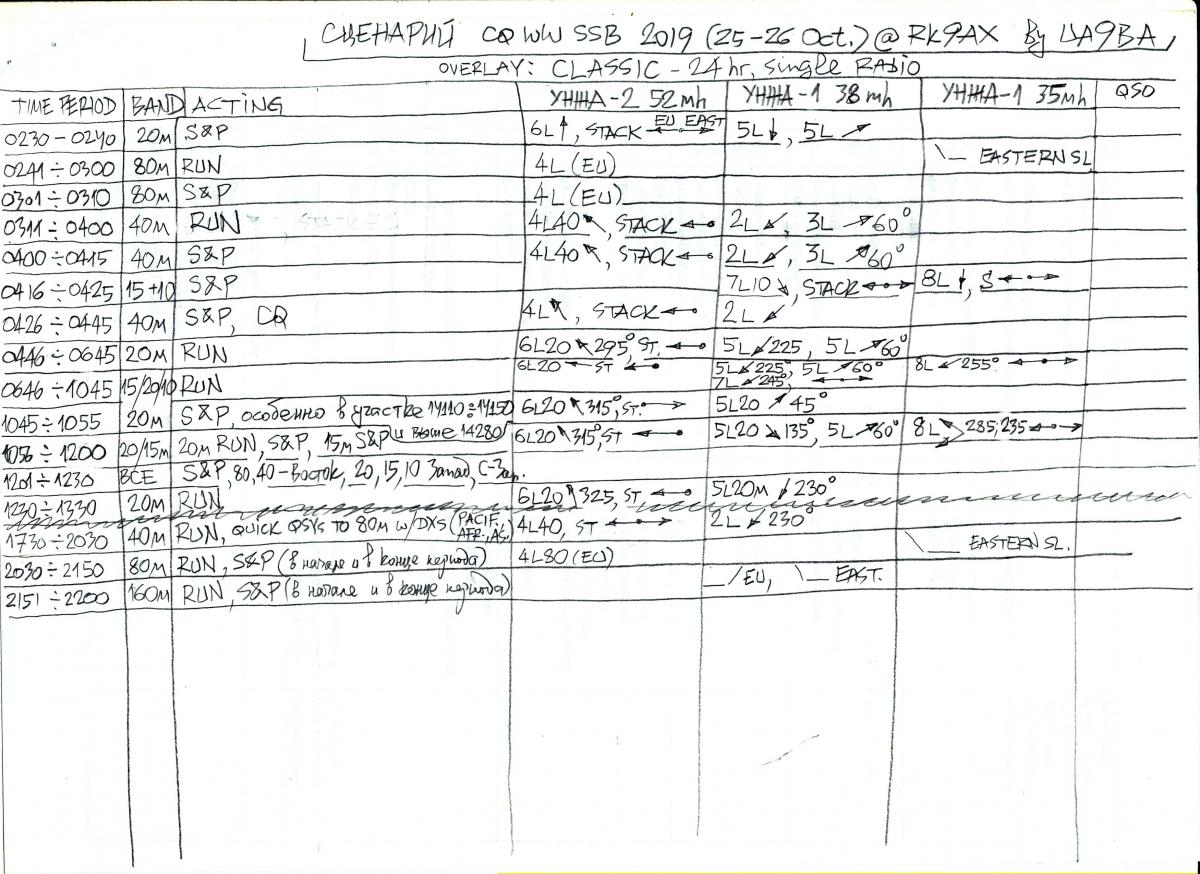 СЦЕНАРИЙ CQ WW SSB 2019 (25-26 Oct.) @ RK9AX By UA9BA
OVERLAY: CLASSIC - 24 hr, single RADIO
TIME PERIOD BAND ACTING УНЖА-2 52mh УНЖА-1 38mh УНЖА-1 35mh QSO
0230-0240 20м S&P 6L↑, STACK ←→ EU EAST 5L↓, 5L↗
0241÷0300 80м RUN 4L (EU) \_ EASTERN SL
0301÷0310 80м S&P 4L (EU)
0311÷0400 40м RUN 4L40↖, STACK← 2L↙, 3L↗60°
0400÷0415 40м S&P 4L40↖, STACK← 2L↙, 3L↗60°
0416÷0425 15+10 S&P 7L10↘, STACK←→ 8L↓, S←→
0426÷0445 40м S&P, CQ 4L↖, STACK← 2L↙
0446÷0645 20м RUN 6L20↖295° ST.← 5L↙225, 5L↗60°
0646÷1045 15/20/10 RUN 6L20← ST← 5L↙225°, 5L↗60° 8L↙255° ←→
7L↙245°, ←→
1045÷1055 20м S&P, особенно в участке 14110÷14150 6L20↖315°, ST.→ 5L20↗45°
и выше 14280
1056÷1200 20/15м 20м RUN, S&P, 15м S&P 6L20↖315°, ST← 5L20↘135°, 5L↗60° 8L 285, 235←→
1201÷1230 ВСЕ S&P, 80,40-Восток, 20,15,10 Запад, С-Зап.
1230÷1330 20м RUN 6L20↑325, ST.← 5L20м↓230°
1730÷2030 40м RUN, QUICK QSYs TO 80м w/DXs (PACIF. AFR., AS.) 4L40, ST ←→ 2L↙230°
2030÷2150 80м RUN, S&P (в начале и в конце периода) 4L80 (EU) \_ EASTERN SL.
2151÷2200 160м RUN, S&P (в начале и в конце периода) _/EU, \_ EAST.